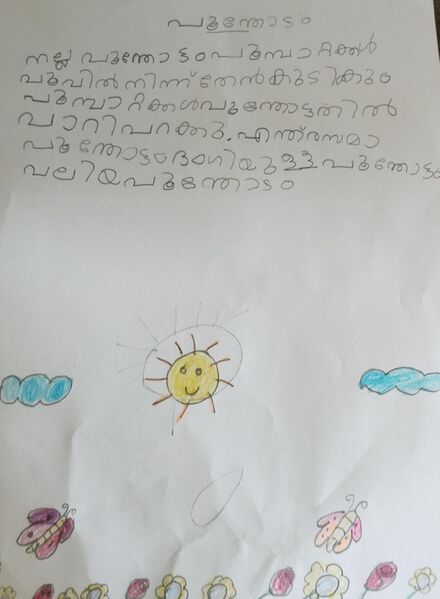 പൂന്തോട്ടം
നല്ല പൂന്തോട്ടം പൂമ്പാറ്റകൾ
പൂവിൽ നിന്ന് തേൻ കുടിക്കും
പൂമ്പാറ്റകൾ പൂന്തോട്ടത്തിൽ
പാറിപറക്കും. എന്ത് രസമാ
പൂന്തോട്ടം ഭംഗിയുള്ള പൂന്തോട്ടം
വലിയ പൂന്തോട്ടം